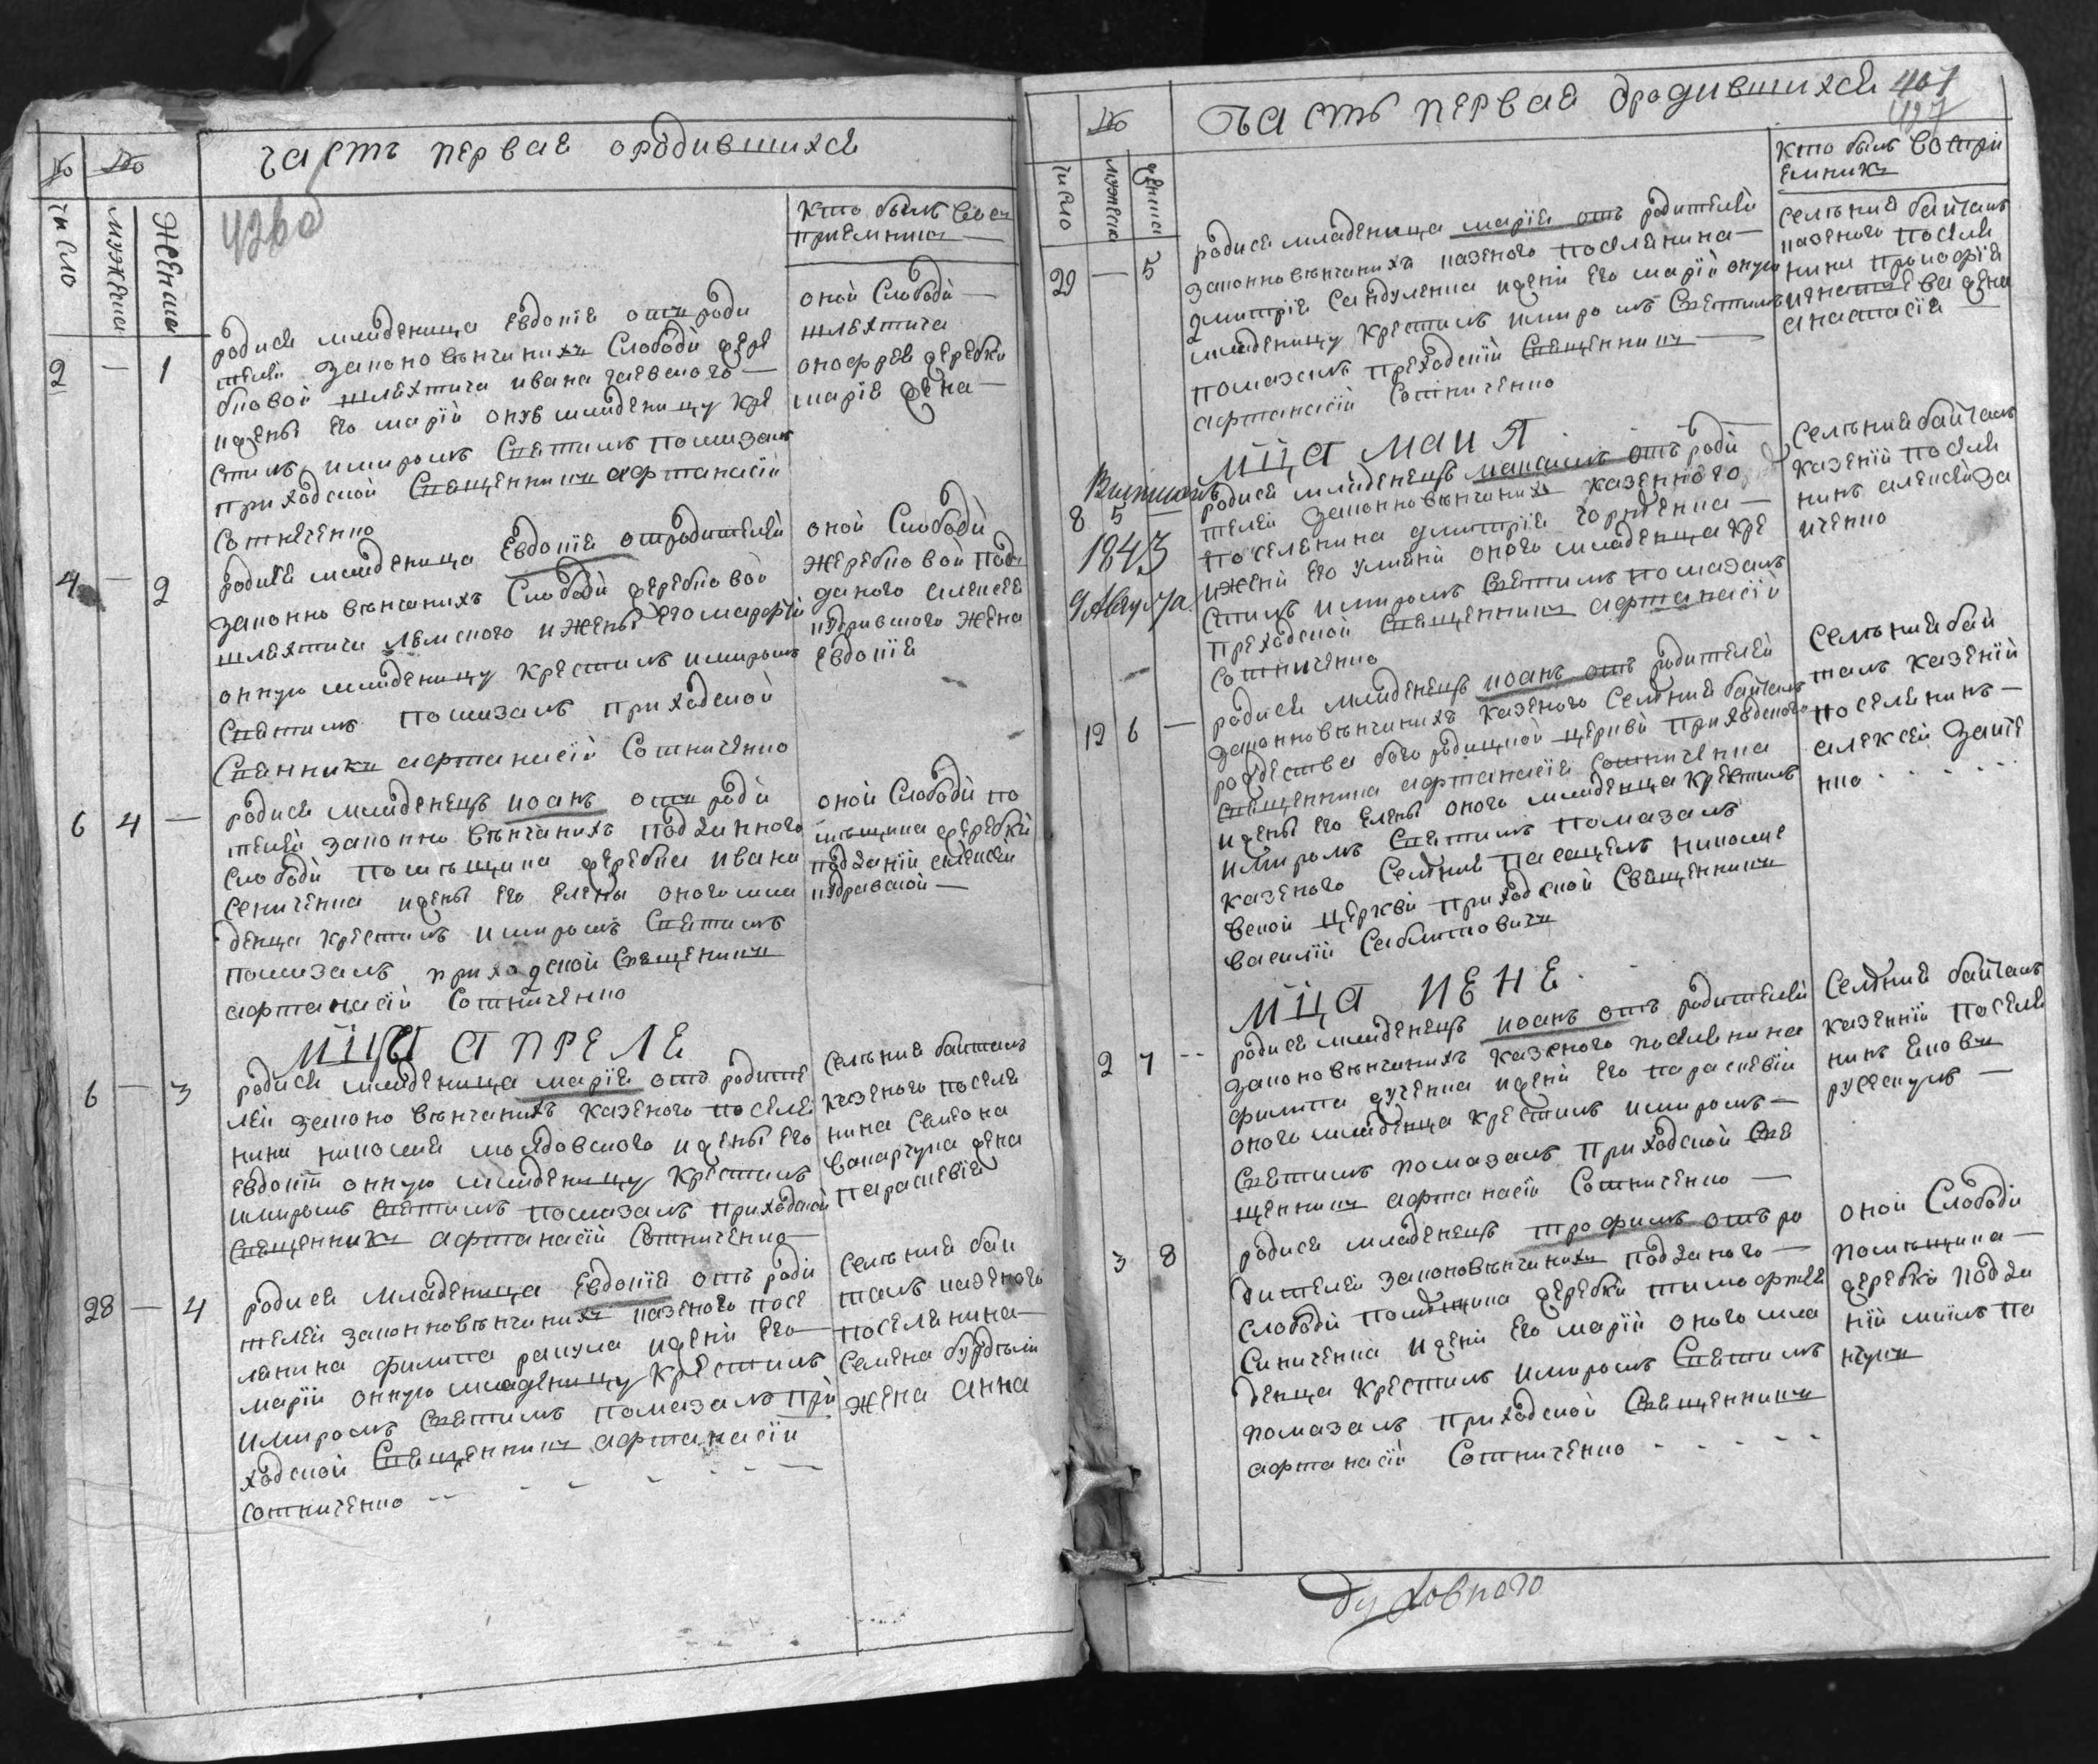 часть первая ородившихся
426о
число
мужеска
женска
Кто былъ Вос
приемникъ
2 — 1
родися младеница Евдокіа отъ роди
телей законо вѣнчанихъ Слободи жере
бковой шляхтича ивана
ижены его марій онув младеницу кре
стилъ, имиромъ Святимъ помазалъ
приходской Священникъ афтанасій
Сотниченко
оной Слободи —
шляхтича
онофрея жеребки
маріа жена —
4 — 2
родися младеница Евдокіа отродителей
законно вѣнчанихъ Слободи жеребковой
шляхтича ижены его марфій
онную младеницу крестилъ имиромъ
Святимъ помазалъ приходской
Свянникъ афтанасій Сотниченко
оной Слободи
жеребковой подъ
даного алексея
жена
Евдокіа
6 4 —
родися младенецъ иоанъ отъ роди
телей законно вѣнчанихъ подданного
Слободи помѣщика жеребки ивана
Сениченка ижены его Елены оного мла
денца крестилъ имиромъ Святимъ
помазалъ приходской Священикъ
афтанасій Сотниченко
оной Слободи по
мѣщика жеребки
подданій алексей
—
мца апреле
6 — 3
родися младеница маріа отъ родите
лей законо вѣнчанихъ казеного поселя
нина николая молдовского ижены его
Евдокій онную младеницу крестилъ
имиромъ Святимъ помазалъ приходской
Священникъ афтанасій Сотниченко
Селенив байталъ
казеного поселя
нина Семиона
жена
параскевіа
28 — 4
родися младеница Евдокіа отъ роди
телей законновѣнчанихъ казеного посе
лянина филипа ракула ижени его
марій онную младеницу крестилъ
имиромъ Святимъ помазалъ при
ходской Священникъ афтанасій
Сотниченко
Селений бай
талъ казеного
поселянина —
Семена
жена Анна
часть первая ородившихся 401
427
число
мужеска
женска
Кто былъ Воспри
емникъ
29 — 5
родися младеница маріа отъ родителей
законновѣнчанихъ казеного поселянина —
дмитріа Сандуленка ижени его марій онную
младеницу крестилъ имиромъ Святимъ
помазалъ преходскій Священникъ —
афтанасій Сотниченко
селения байталъ
казеного поселя
нина прокофіа
жена
анастасіа
мца маия
8 5 —
1843
9 Августа
родися младенецъ максимъ отъ роди
телей законновѣнчанихъ казенного
поселянина дмитріа
ижени его уляни оного младенца кре
стилъ имиромъ Святимъ помазалъ
преходской Священникъ афтанасій
Сотниченко
Селения байталъ
казений поселя
нинъ алексей за
иченко
12 6 —
родися младенецъ иоанъ отъ родителей
законновѣнчанихъ казеного Селения байталъ
рождества богородицкой церкви приходского
Священника афтанасіа Сотниченка
ижены его Елены оного младенца крестилъ
имиромъ Святимъ помазалъ
казеного Селения николае
вской церкви приходской Священникъ
василій
Селений бай
талъ казеній
поселянинъ —
алексей заиче
нко
мца июне
2 7 --
родися младенецъ иоанъ отъ родителей
законовѣнчанихъ казеного поселянина
филипа ижени его параскевій
оного младенца крестилъ имиромъ —
Святимъ помазалъ приходской Свя
щенникъ афтанасій Сотниченко —
Селения байталъ
казенній поселя
нинъ
—
3 8
родися младенецъ трофимъ отъ ро
дителей законовѣнчанихъ подданого —
Слободи помѣщика жеребки тимофтея
Синиченка ижени его марій оного мла
денца крестилъ имиромъ Святимъ
помазалъ приходской Священникъ
афтанасій Сотниченко
оной Слободи
помѣщика —
жеребки подда
ній
духовного